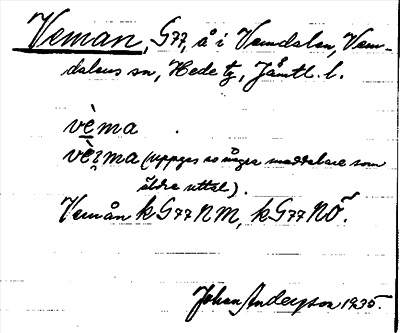 Veman, G77, å i Vemdalen, Vem-
dalens sn, Hede tg, Jämtl. l.
vèma
vèꝛma (uppges av några meddelare som
äldre uttal).
Vemån k G77 NM, k G77 NÖ.
Johan Anderson 1935.